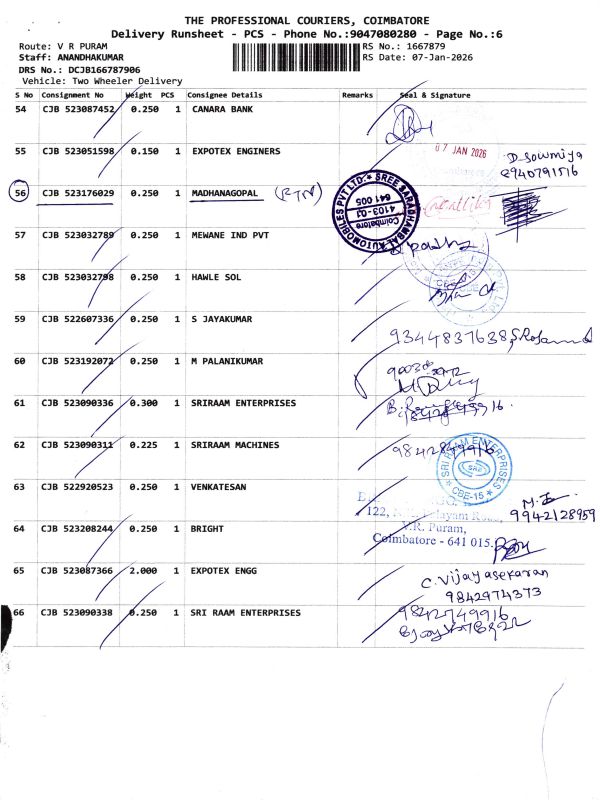 THE PROFESSIONAL COURIERS, COIMBATORE
Delivery Runsheet - PCS - Phone No.:9047080280 - Page No.:6
Route: V R PURAM
RS No.: 1667879
Staff: ANANDHAKUMAR
RS Date: 07-Jan-2026
DRS No.: DCJB166787906
Vehicle: Two Wheeler Delivery
S No Consignment No Weight PCS Consignee Details Remarks Seal & Signature
54 CJB 523087452 0.250 1 CANARA BANK
55 CJB 523051598 0.150 1 EXPOTEX ENGINERS 07 JAN 2026 D. Sowmiya
8940791516
56 CJB 523176029 0.250 1 MADHANAGOPAL (RTN)
SREE SARADHAMBAL AUTOMOBILES PVT LTD.
4103-02
Coimbatore
641 005
57 CJB 523032789 0.250 1 MEWANE IND PVT
58 CJB 523032798 0.250 1 HAWLE SOL
59 CJB 522607336 0.250 1 S JAYAKUMAR 9344837638
60 CJB 523192072 0.250 1 M PALANIKUMAR
61 CJB 523090336 0.300 1 SRIRAAM ENTERPRISES
62 CJB 523090311 0.225 1 SRIRAAM MACHINES 9842849916
SRI RAAM ENTERPRISES
SRE
CBE-15
63 CJB 522920523 0.250 1 VENKATESAN
9942128959
64 CJB 523208244 0.250 1 BRIGHT
V.R. Puram,
Coimbatore - 641 015.
65 CJB 523087366 2.000 1 EXPOTEX ENGG C. Vijayasekaran
9842974373
66 CJB 523090338 0.250 1 SRI RAAM ENTERPRISES 9842749916